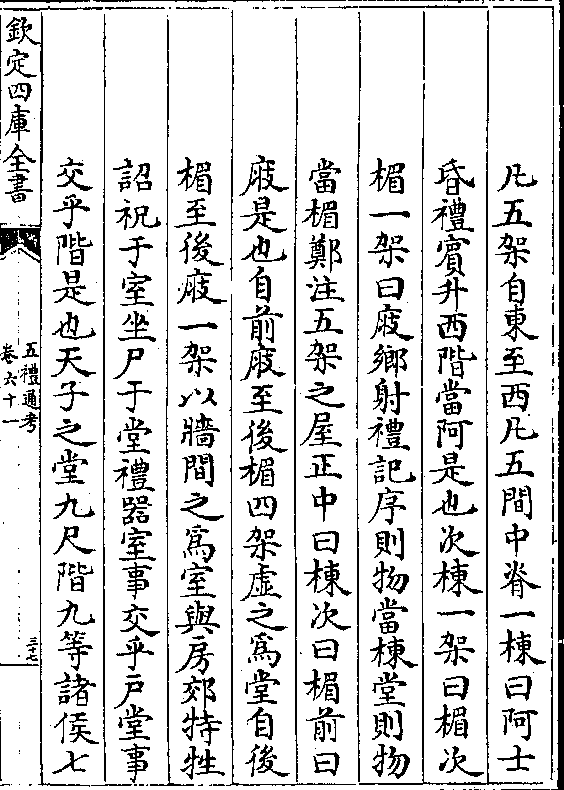 凡五架自東至西凡五間中脊一棟曰阿士
昏禮賓升西階當阿是也次棟一架曰楣次
楣一架曰庪鄉射禮記序則物當棟堂則物
當楣鄭注五架之屋正中曰棟次曰楣前曰
庪是也自前庪至後楣四架虛之爲堂自後
楣至後庪一架以牆間之爲室與房郊特牲
詔祝于室坐尸于堂禮器室事交乎戶堂事
交乎階是也天子之堂九尺階九等諸侯七
欽定四庫全書
五禮通考
卷六十一
三十七